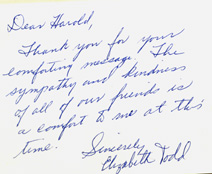 Dear Harold,
Thank you for your
comforting message. The
sympathy and kindness
of all of our friends is
a comfort to me at this
time.
Sincerely
Elizabeth Todd